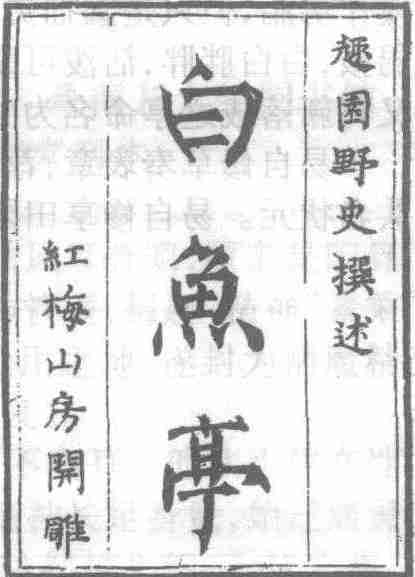 趣園野史撰述
白魚亭
紅梅山房開雕